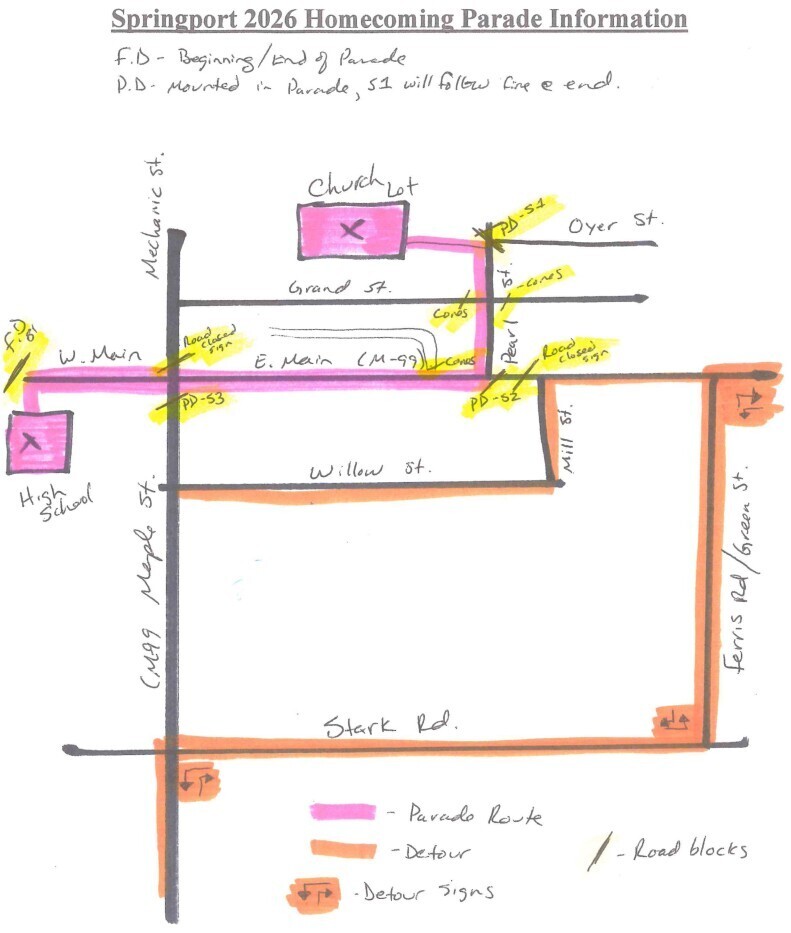 Springport 2026 Homecoming Parade Information
F.D - Beginning/End of Parade
P.D - Mounted in Parade, S1 will follow fire @ end.
Mechanic St.
Church Lot
PD-S1
Oyer St.
Grand St.
Cones
-Cones
Pearl St.
F.D.
W. Main
Road closed sign
E. Main (M-99)
-Cones
Road closed sign
PD-S3
PD-S2
High School
Willow St.
Mill St.
(M99 Maple St.
Ferris Rd/Green St.
Stark Rd.
- Parade Route
- Detour
- Road blocks
- Detour Signs